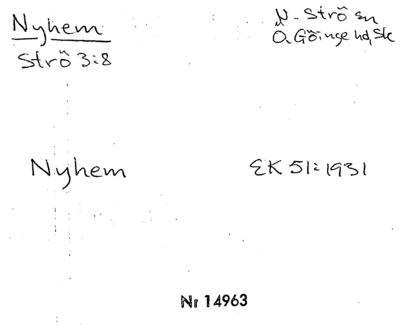 Nyhem
Strö 3:8
N. Strö sn
Ö. Göinge hd, Sk
Nyhem
EK 51:1931
Nr 14963